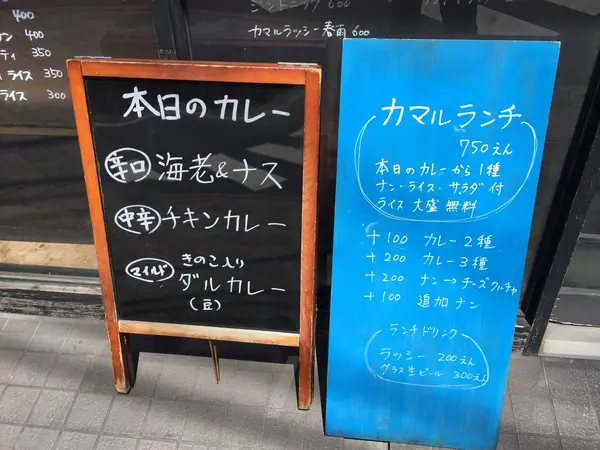 400
400
ティ 350
ライス 350
ライス 300
600
カマルラッシー春雨 600
本日のカレー
辛口 海老&ナス
中辛 チキンカレー
マイルド きのこ入り
ダルカレー
(豆)
カマルランチ
750えん
本日のカレーから1種
ナン・ライス・サラダ付
ライス大盛無料
+100 カレー2種
+200 カレー3種
+200 ナン→チーズクルチャ
+100 追加ナン
ランチドリンク
ラッシー 200えん
グラス生ビール 300えん